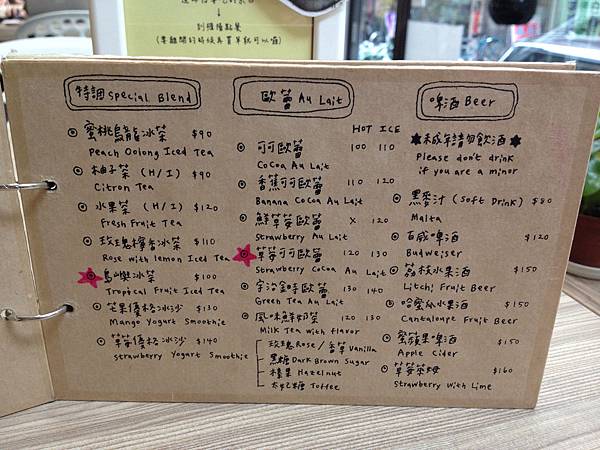 到櫃檯點餐
特調 Special Blend
蜜桃烏龍冰茶 $90
Peach Oolong Iced Tea
柚子茶 (H/I) $90
Citron Tea
水果茶 (H/I) $120
Fresh Fruit Tea
玫瑰檸香冰茶 $110
Rose with lemon Iced Tea
島嶼冰茶 $100
Tropical Fruit Iced Tea
芒果優格冰沙 $130
Mango Yogurt Smoothie
草莓優格冰沙 $140
strawberry Yogurt Smoothie
歐蕾 Au Lait
HOT ICE
可可歐蕾 100 110
CoCoa Au Lait
香蕉可可歐蕾 110 120
Banana Cocoa Au Lait
鮮草莓歐蕾 X 120
Strawberry Au Lait
草莓可可歐蕾 120 130
Strawberry CoCoa Au Lait
宇治金時歐蕾 130 140
Green Tea Au Lait
風味鮮奶茶 120 130
Milk Tea with flavor
玫瑰 Rose / 香草 Vanilla
黑糖 Dark Brown Sugar
榛果 Hazelnut
太妃糖 Toffee
啤酒 Beer
未成年請勿飲酒
Please don't drink
if you are a minor
黑麥汁 (Soft Drink) $80
Malta
百威啤酒 $120
Budweiser
荔枝水果酒 $150
Litchi Fruit Beer
哈蜜瓜水果酒 $150
Cantaloupe Fruit Beer
蜜蘋果啤酒 $150
Apple Cider
草莓萊姆 $160
Strawberry with Lime